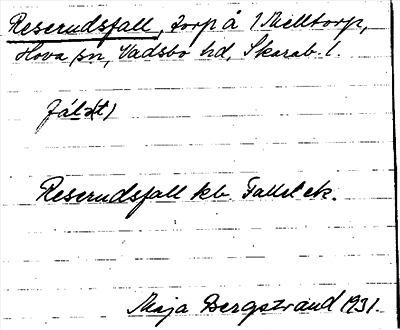 Reserudsfall, torp å 1 Melltorp,
Hova sn, Vadsbo hd, Skarab. l.
fál(t)
Reserudsfall kb. Fallet ek.
Maja Bergstrand 1931.